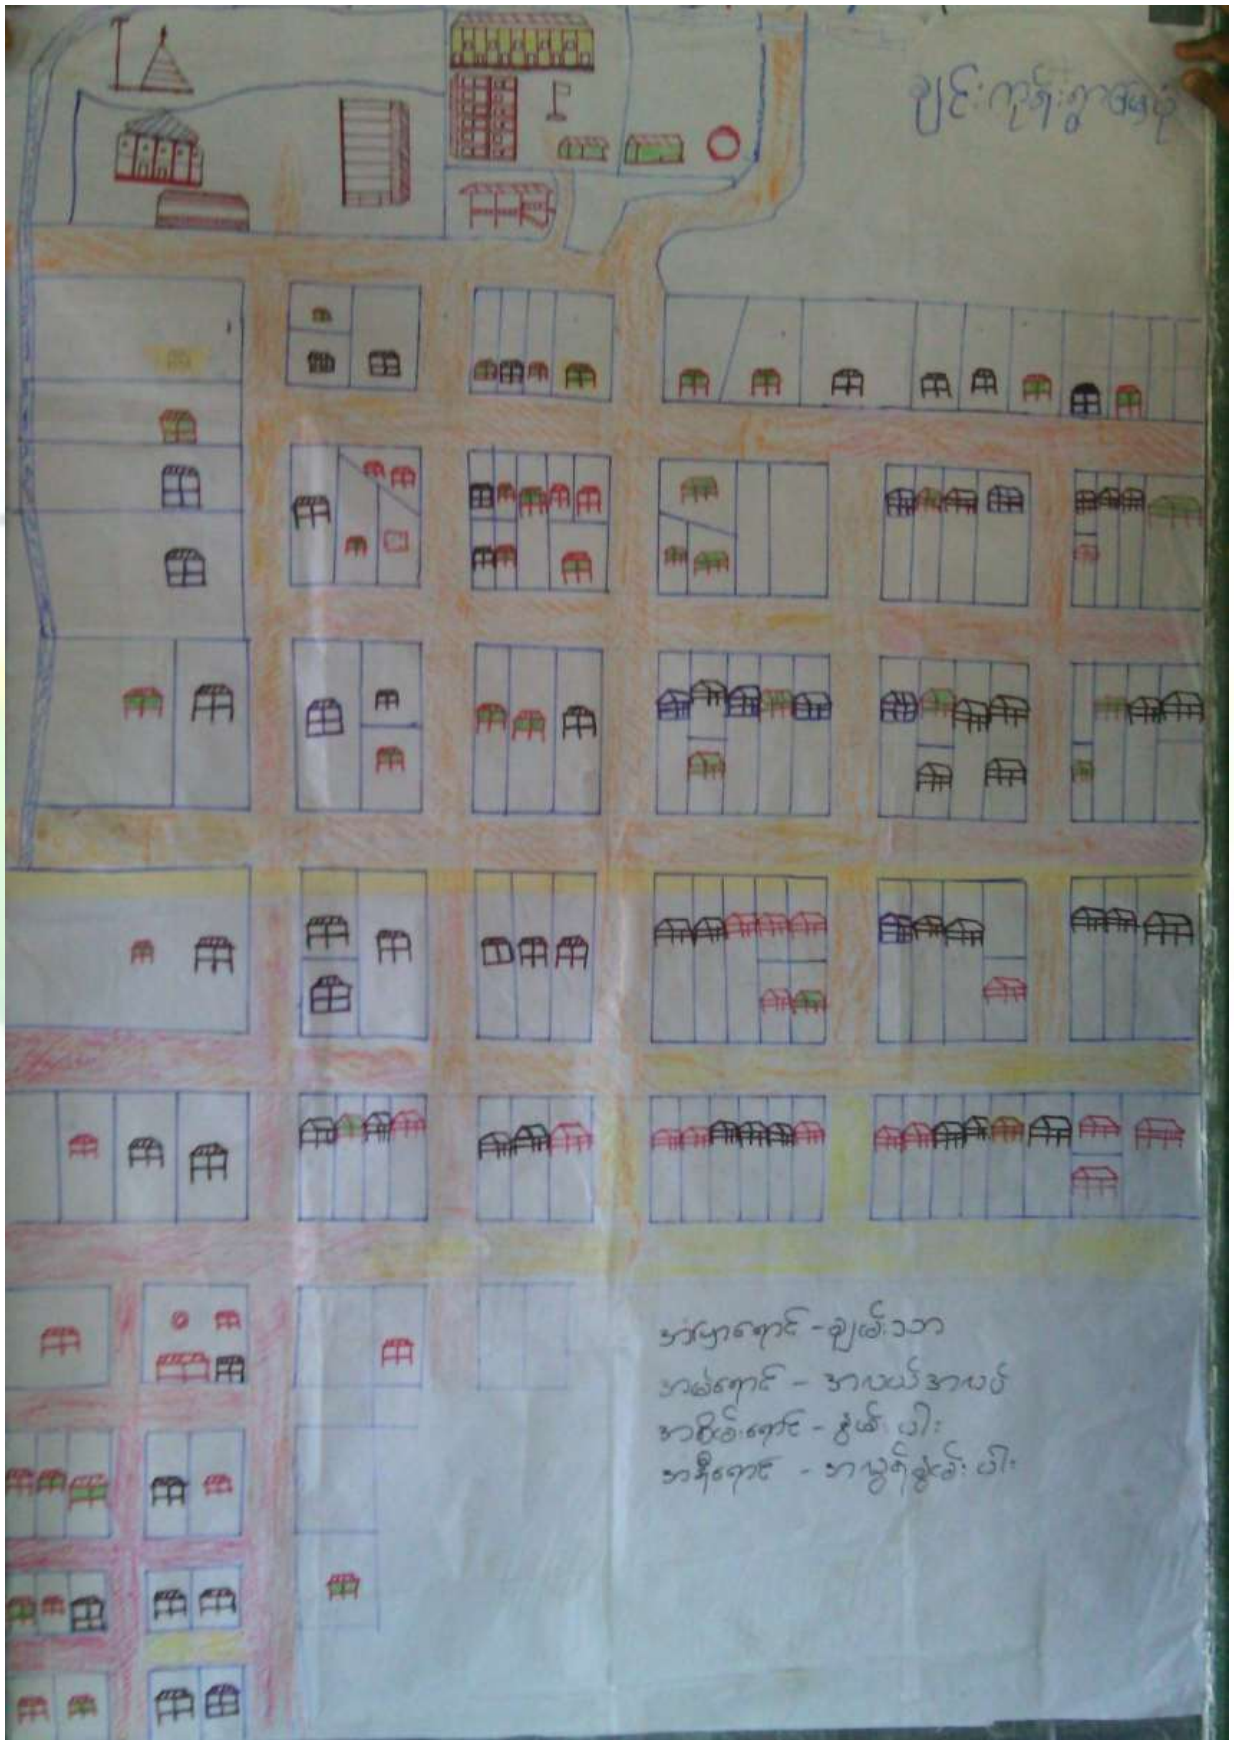 ချင်းကုန်းရွာမြေပုံ
အပြာရောင် - ချမ်းသာ
အမဲရောင် - အလယ်အလပ်
အစိမ်းရောင် - နွမ်းပါး
အနီရောင် - အလွန်နွမ်းပါး